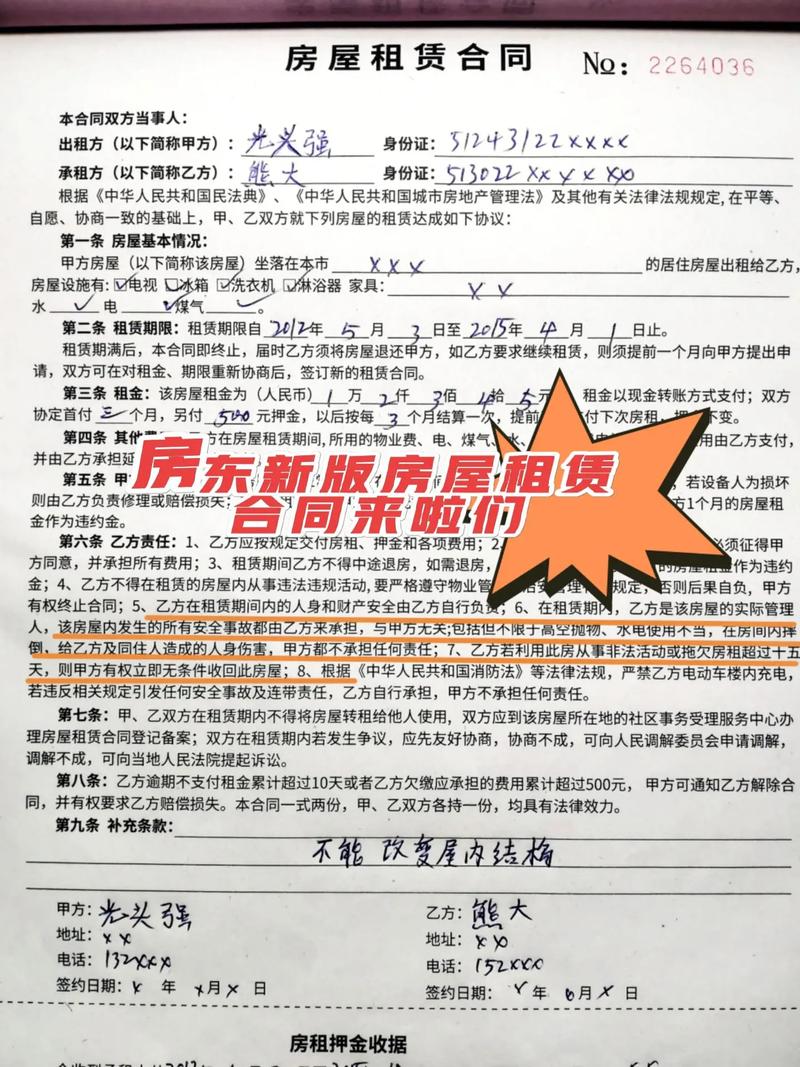 房屋租赁合同 №: 2264036
本合同双方当事人:
出租方（以下简称甲方）: 光头强 身份证: 51243122xxxx
承租方（以下简称乙方）: 熊大 身份证: 513022xxxxxx
根据《中华人民共和国民法典》、《中华人民共和国城市房地产管理法》及其他有关法律法规规定,在平等、
自愿、协商一致的基础上，甲、乙双方就下列房屋的租赁达成如下协议:
第一条 房屋基本情况:
甲方房屋（以下简称该房屋）坐落在本市 xxx 的居住房屋出租给乙方,
房屋设施有: ☑电视 ☑冰箱 ☑洗衣机 ☑淋浴器 家具: xx
水 ✓ 电 ✓ 煤气 ✓ 。
第二条 租赁期限: 租赁期限自2012年5月3日至2015年4月1日止。
租赁期满后，本合同即终止，届时乙方须将房屋退还甲方，如乙方要求继续租赁，则须提前一个月向甲方提出申
请，双方可在对租金、期限重新协商后，签订新的租赁合同。
第三条 租金: 该房屋租金为（人民币）1万2仟3佰4拾5元 租金以现金转账方式支付；双方
协定首付三个月，另付500元押金，以后按每3个月结算一次，提前 付下次房租，押 不变。
第四条 其他费 乙方在房屋租赁期间,所用的物业费、电、煤气、水、 用由乙方支付，
并由乙方承担延
房东新版房屋租赁
合同来啦们
第五条 甲 ，若设备人为损坏
则由乙方负责修理或赔偿损失； 方1个月的房屋租
金作为违约金。
第六条 乙方责任: 1、乙方应按规定交付房租、押金和各项费用；2、 必须征得甲
方同意，并承担所有费用；3、租赁期间乙方不得中途退房，如需退房， 的房屋租金作为违约
金；4、乙方不得在租赁的房屋内从事违法违规活动,要严格遵守物业管 治安管理 规定，否则后果自负，甲方
有权终止合同；5、乙方在租赁期间内的人身和财产安全由乙方自行负责；6、在租赁期内，乙方是该房屋的实际管理
人，该房屋内发生的所有安全事故都由乙方来承担，与甲方无关;包括但不限于高空抛物、水电使用不当，在房间内摔
倒,给乙方及同住人造成的人身伤害，甲方都不承担任何责任；7、乙方若利用此房从事非法活动或拖欠房租超过十五
天，则甲方有权立即无条件收回此房屋；8、根据《中华人民共和国消防法》等法律法规，严禁乙方电动车楼内充电，
若违反相关规定引发任何安全事故及连带责任，乙方自行承担，甲方不承担任何责任。
第七条: 甲、乙双方在租赁期内不得将房屋转租给他人使用，双方应到该房屋所在地的社区事务受理服务中心办
理房屋租赁合同登记备案；双方在租赁期内若发生争议，应先友好协商，协商不成，可向人民调解委员会申请调解，
调解不成，可向当地人民法院提起诉讼。
第八条: 乙方逾期不支付租金累计超过10天或者乙方欠缴应承担的费用累计超过500元， 甲方可通知乙方解除合
同，并有权要求乙方赔偿损失。本合同一式两份，甲、乙双方各持一份，均具有法律效力。
第九条 补充条款:
不能改变屋内结构
甲方: 光头强 乙方: 熊大
地址: xx 地址: xx
电话: 132xxx 电话: 152xxx
签约日期: x年x月x日 签约日期: 年 月x日
房租押金收据